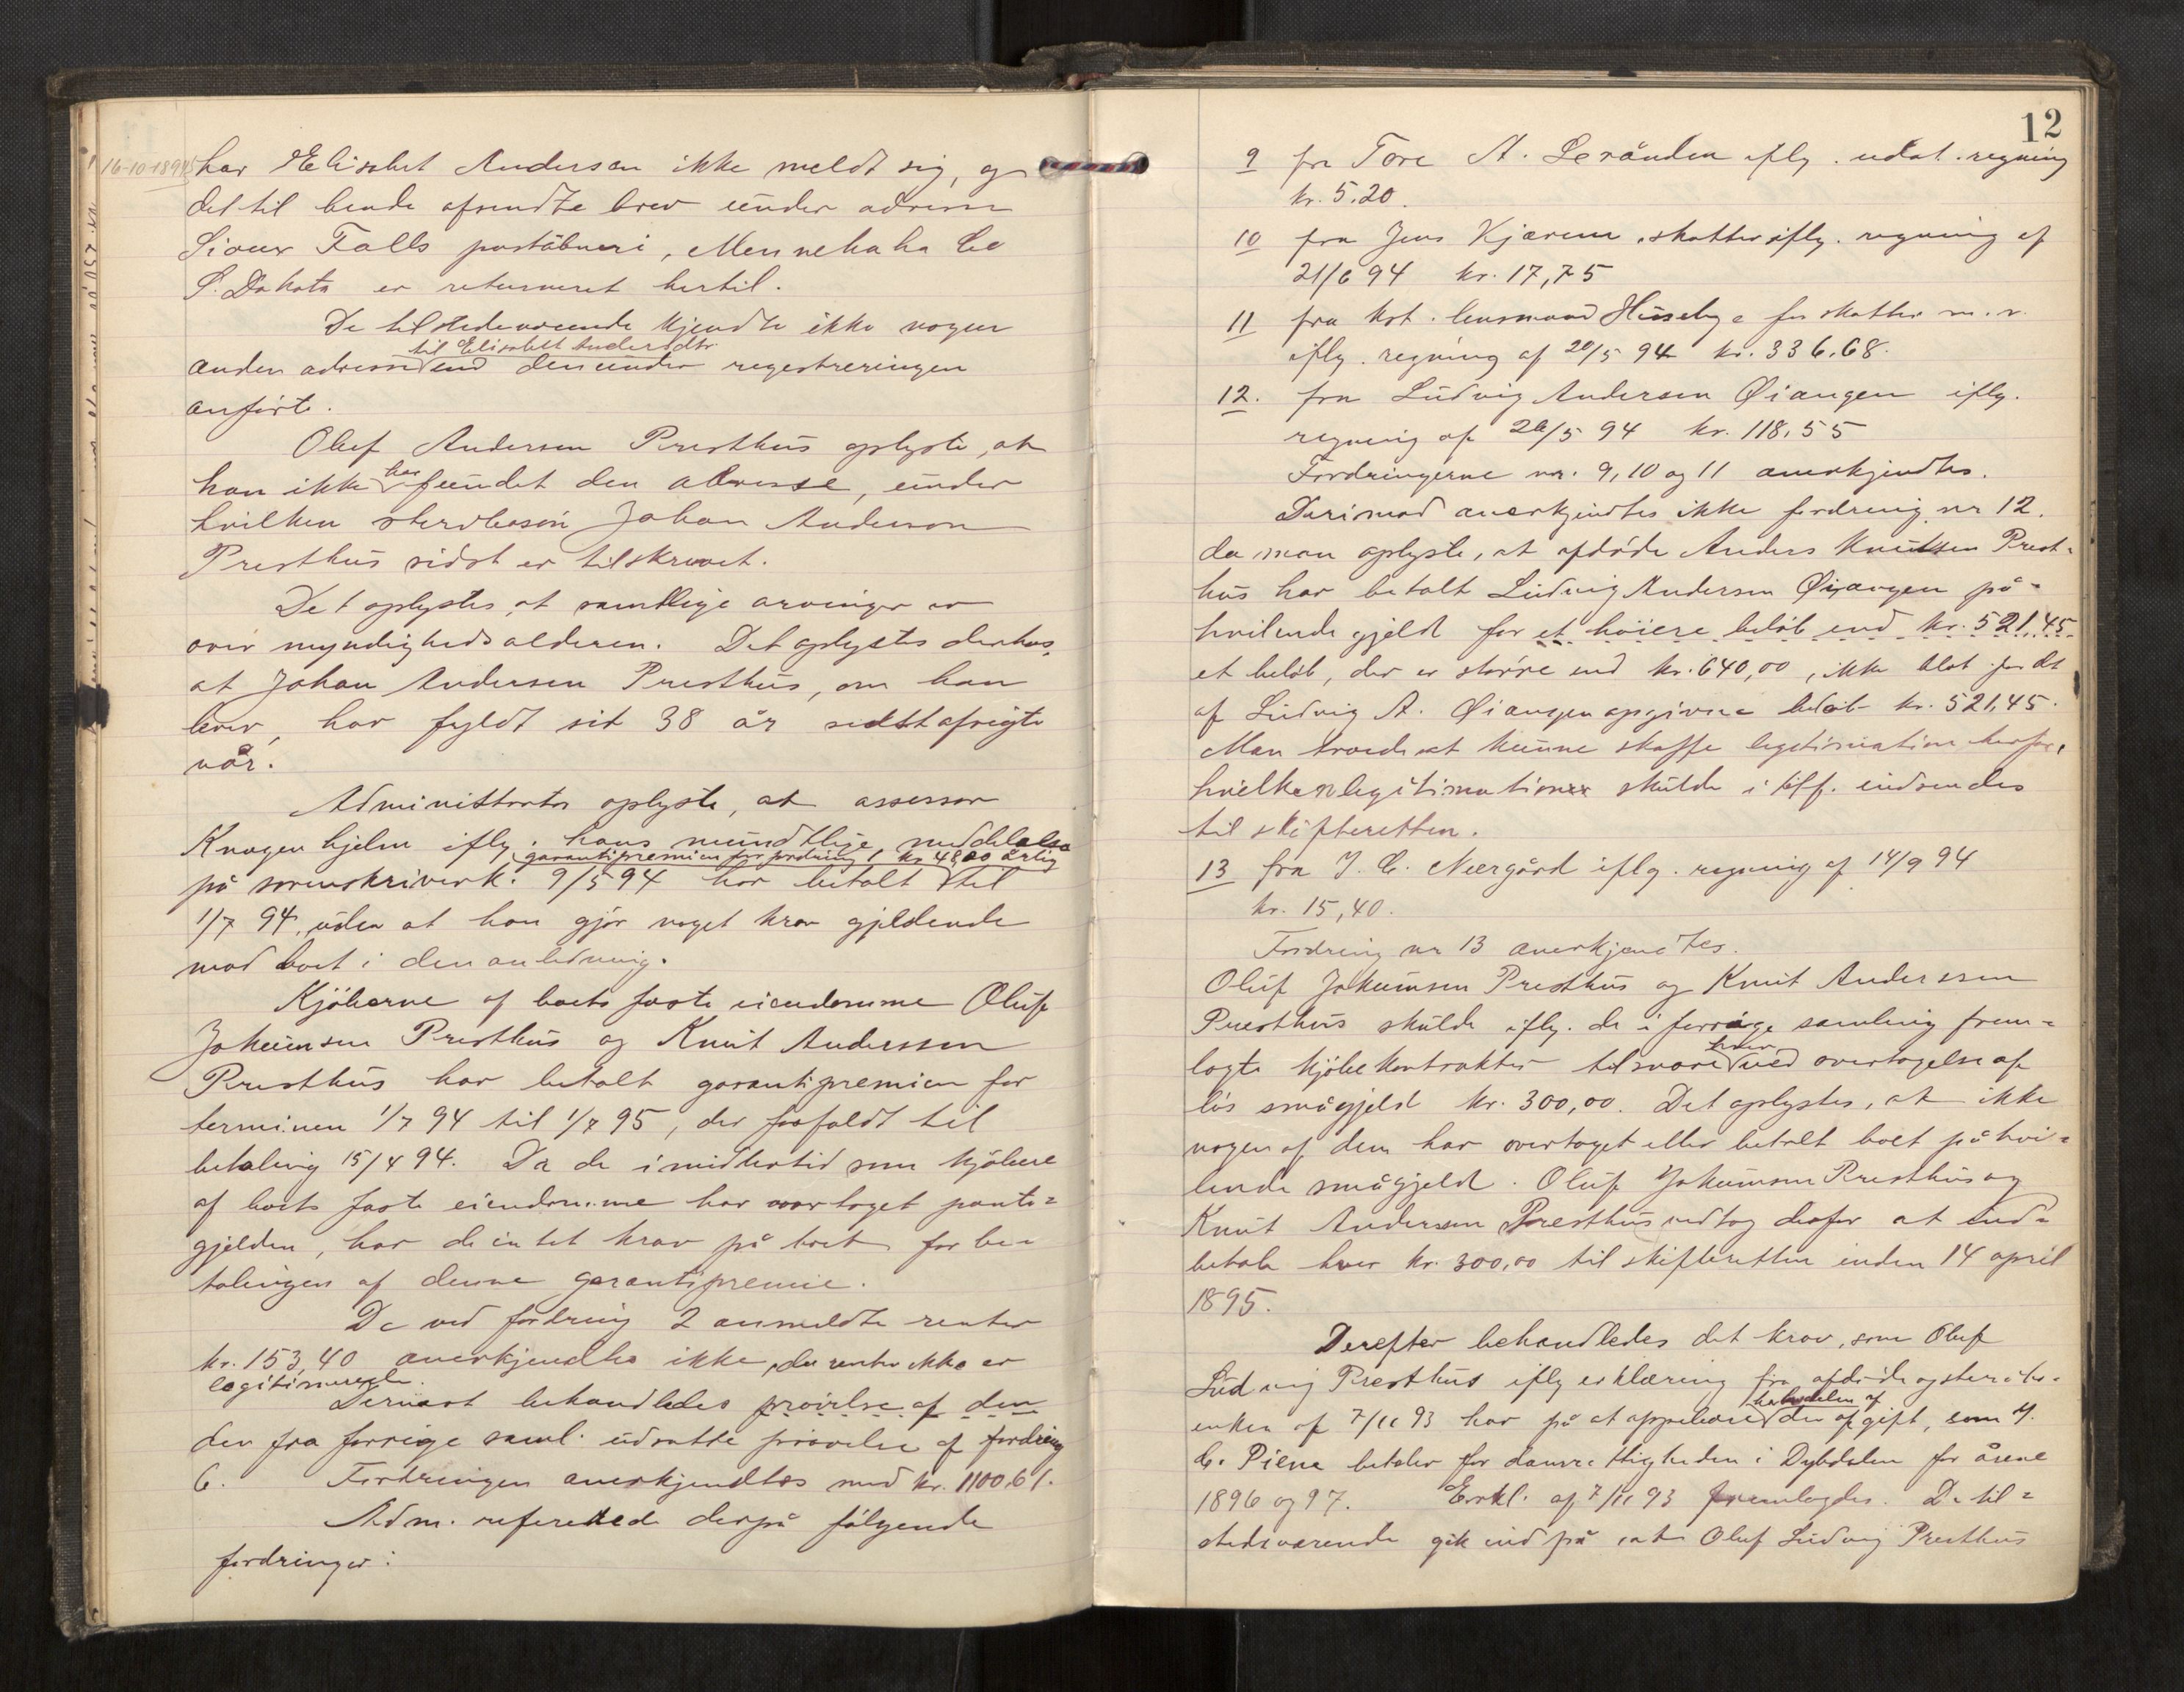 16-10-1894
har Elisabet Anderson ikke meldt sig, og
det til hende afsendte brev under adresse
Sioux Falls poståbneri, Mennehaha Co
S. Dakota er returneret hertil.
De tilstedeværende kjendte ikke nogen
til Elisabet Andersdtr.
anden adresse end den under registreringen
anførte.
Oluf Andersen Presthus oplyste, at
han ikke har fundet den adresse, under
hvilken stervboson Johan Anderson
Presthus sidst er tilskrevet.
Det oplystes, at samtlige arvinger er
over myndighedsalderen. Det oplystes derhos,
at Johan Andersen Presthus, om han
lever, har fyldt sit 38 år sidstafvigte
vår.
Administrator oplyste, at assessor
Knagenhjelm iflg. hans mundtlige meddelelse
garantipremien for fordring 1 kr 48,00 årlig
på sorenskriverk. 9/5 94 har betalt til
1/7 94, uden at han gjør noget krav gjeldende
mod boet i den anledning.
Kjøberne af boets faste eiendomme Oluf
Jokumsen Presthus og Knut Anderssen
Presthus har betalt garantipremien for
terminen 1/7 94 til 1/7 95, der forfaldt til
betaling 15/4 94. Da de imidlertid som kjøbere
af boets faste eiendomme har overtaget pante=
gjelden, har de intet krav på boet for be=
talingen af denne garantipremie.
De ved fordring 2 anmeldte renter
kr. 153,40 anerkjendtes ikke, da renter ikke er
legitimerede.
Dernæst behandledes prøvelse af den
den fra forrige saml. udsatte prøvelse af fordring
6. Fordringen anerkjendtes med kr. 1100,61.
Adm. refererede derpå følgende
fordringer:
12
9 fra Tore A. Leränden iflg. udat. regning
kr. 5.20.
10 fra Jens Kjærem, skatter iflg. regning af
21/6 94 kr. 17,75
11 fra kst. lensmand Huseby for skatter m. v.
iflg. regning af 20/5 94 kr. 336,68.
12. fra Ludvig Andersen Øiangen iflg.
regning af 20/5 94 kr. 118,55
Fordringerne nr. 9, 10 og 11 anerkjendtes.
Derimod anerkjendtes ikke fordring nr 12.
da man oplyste, at afdøde Anders Knutsen Prest=
hus har betalt Ludvig Andersen Øiangen på=
hvilende gjeld for et høiere beløb end kr. 521,45
et beløb, der er større end kr. 640,00, ikke blot for det
af Ludvig A. Øiangen opgivne beløb kr. 521,45.
Man troede at kunne skaffe legitimation herfor,
hvilken legitimation skulde i tilf. indsendes
til skifteretten.
13 fra J. C. Neergård iflg. regning af 14/9 94
kr. 15,40.
Fordring nr 13 anerkjendtes.
Oluf Jokumsen Presthus og Knut Anderssen
Presthus skulde iflg. de i forrige samling frem=
lagte kjøbekontrakter tilsvare hver ved overtagelse af
løs smågjeld kr. 300,00. Det oplystes, at ikke
nogen af dem har overtaget eller betalt boet påhvi=
lende smågjeld. Oluf Jokumsen Presthus og
Knut Andersen Presthus vedtog derfor at ind=
betale hver kr. 300,00 til skifteretten inden 14 april
1895.
Derefter behandledes det krav, som Oluf
Ludvig Presthus iflg erklæring fra afdøde og stervbo=
enken af 7/11 93 har på at oppebære halvdelen af den afgift, som
C. Piene betaler for damrettigheden i Dybdalen for årene
1896 og 97. Erkl. af 7/11 93 fremlagdes. De til=
stedeværende gik ind på, at Oluf Ludvig Presthus